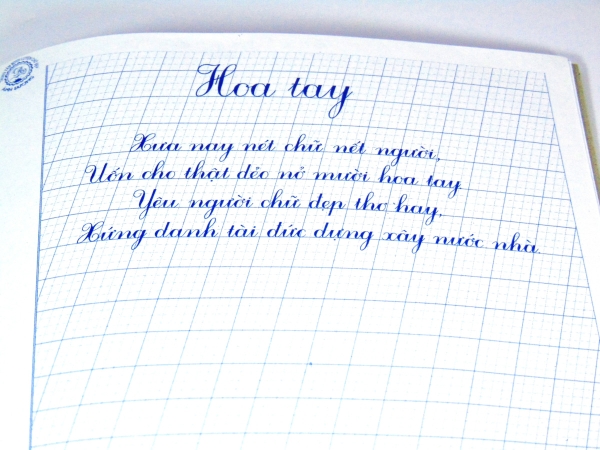 Hoa tay
Xưa nay nét chữ nết người,
Uốn cho thật dẻo nở mười hoa tay
Yêu người chữ đẹp thơ hay,
Xứng danh tài đức dựng xây nước nhà.